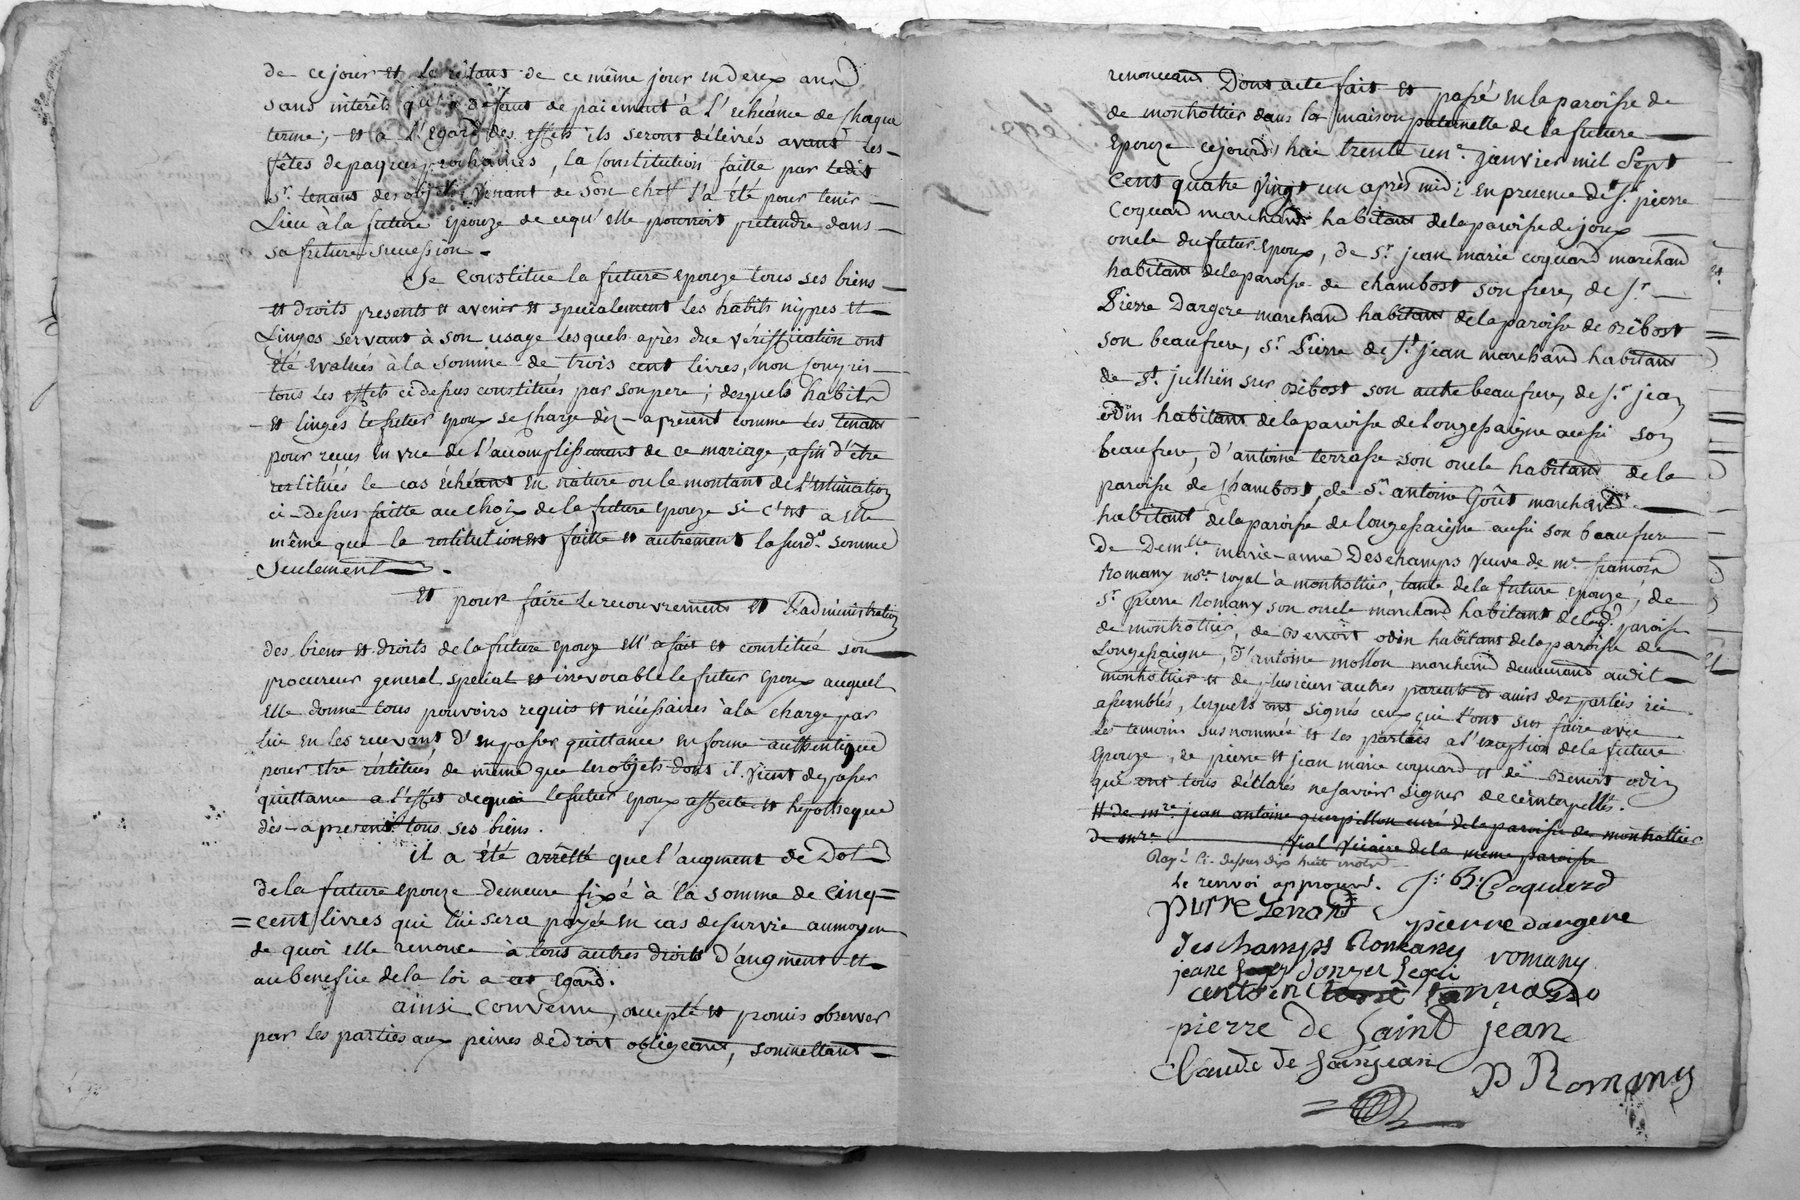 de ce jour et le restant de ce même jour en deux ans
sans intérêts qu'a défaut de paiement à l'echéance de chaque
terme; et a l'Egard des effets ils seront délivrés avant les
fêtes de paques prochaines, la Constitution faitte par ledit
Sr. tenant des objets venant de Son chef l'a été pour tenir
Lieu à la future Epouze de cequ'elle pourroit prétendre dans
sa future succession.
Se Constitue la future epouze tous ses biens
et droits presents et avenir et specialement les habits nippes et
Linges servant à son usage lesquels après due vérification ont
été evalués à la somme de trois cent livres, non compris
tous les effets ci dessus constitués par son pere; desquels habits
et linges le futur epoux se charge dès-apresent comme les tenant
pour recus en vue de l'accomplissement de ce mariage, afin d'être
restitués le cas échéant en nature ou le montant de l'estimation
ci-dessus faitte au choix de la future epouze si c'est a elle
même que la restitution est faitte et autrement la susd. somme
Seulement.
Et pour faire le recouvrement et l'administration
des biens et droits de la future epouze ell' a fait et constitué son
procureur general special et irrevocable le futur epoux auquel
elle donne tous pouvoirs requis et nécéssaires à la charge par
lui en les recevant d'en passer quittance en forme authentique
pour etre réstitués de même que les objets dont il vient de passer
quittance a l'effet dequoi le futur epoux affecte et hypotheque
dès-apresent tous ses biens.
il a été arrêtté que l'augment de Dot
de la future epouze demeure fixé à la somme de cinq=
=cent livres qui lui sera payée en cas de survie au moyen
de quoi elle renonce à tous autres droits d'augment et
au benefice de la loi a cet Egard.
ainsi Convenu, accepté et promis observer
par les parties aux peines de droit obligeant, soumettant
renonceant Dont acte fait et passé en la paroisse de
de montrottier dans la maison paternelle de la future
Epouze cejourd'hui trente un e. janvier mil Sept
Cent quatre vingt un après midi En presence de Sr. pierre
Coquard marchand habitant de la paroisse de joux
oncle du futur epoux, de Sr. jean marie coquard marchand
habitant de la paroisse de chambost son frere, de Sr.
Pierre Dargere marchand habitant de la paroisse de Bibost
son beaufrere, Sr. Pierre de St jean marchand habitant
de St. jullien sur Bibost son autre beaufrere, de Sr. jean
odin habitant de la paroisse de longessaigne aussi son
beaufrere, d'antoine terrasse son oncle habitant de la
paroisse de chambost, de Sr. antoine Goût marchand
habitant de la paroisse de longessaigne aussi son beaufrere
de Demlle marie-anne Deschamps veuve de me. francois
Romany nore. royal à montrottier, tante de la future epouze, de
Sr. pierre Romany son oncle marchand habitant de lad. paroisse
de montrottier, de Benoit odin habitant de la paroisse de
Longessaigne, d'antoine mollon marchand demeurant audit
montrottier et de plusieurs autres parents et amis des parties ici
assemblés, lesquels ont signés ceux qui l'ont sus faire avec
les temoins susnommés et les parties a l'exception de la future
Epouze, de pierre et jean marie coquard et de Benoit odin
qui ont tous déclarés ne savoir signer de ce interpellés.
et de mre. jean antoine querpillon curé de la paroisse de montrottier
de mre Vial Vicaire de la même paroisse
Rayé ci-dessus dix huit mots
Le renvoi approuvé. J: B: Coquard
pierre Tenant
pierre dargere
deschamps Romany romany
jeane donzel
pierre de Saint jean
Claude de Sainjean
P Romany